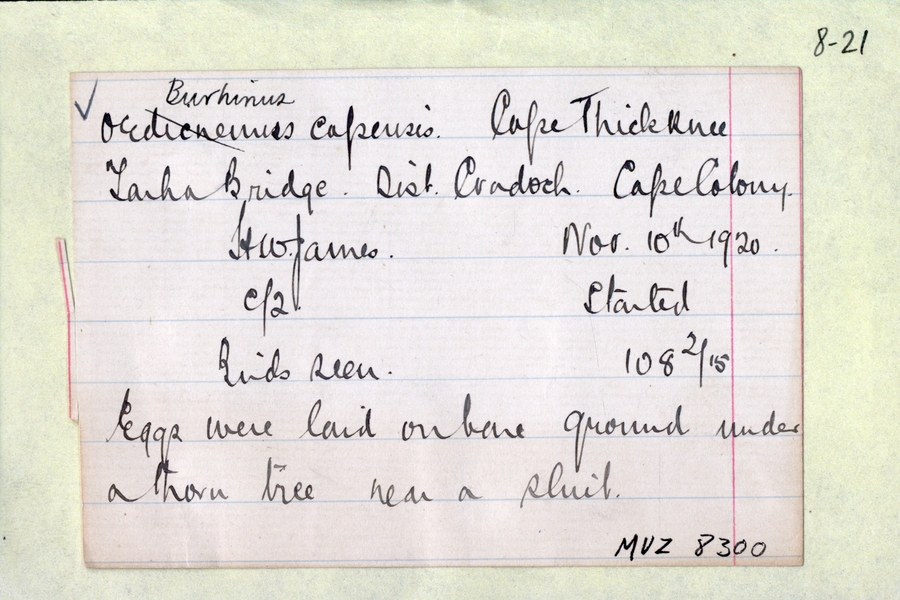 8-21
Burhinus
Oedicnemus capensis. Cape Thick Knee
Tarka Bridge. Dist. Cradock. Cape Colony.
H.W. James. Nov. 10th 1920.
c/2. Started
Birds seen. 108 2/15
Eggs were laid on bare ground under
a thorn tree near a sluit.
MVZ 8300